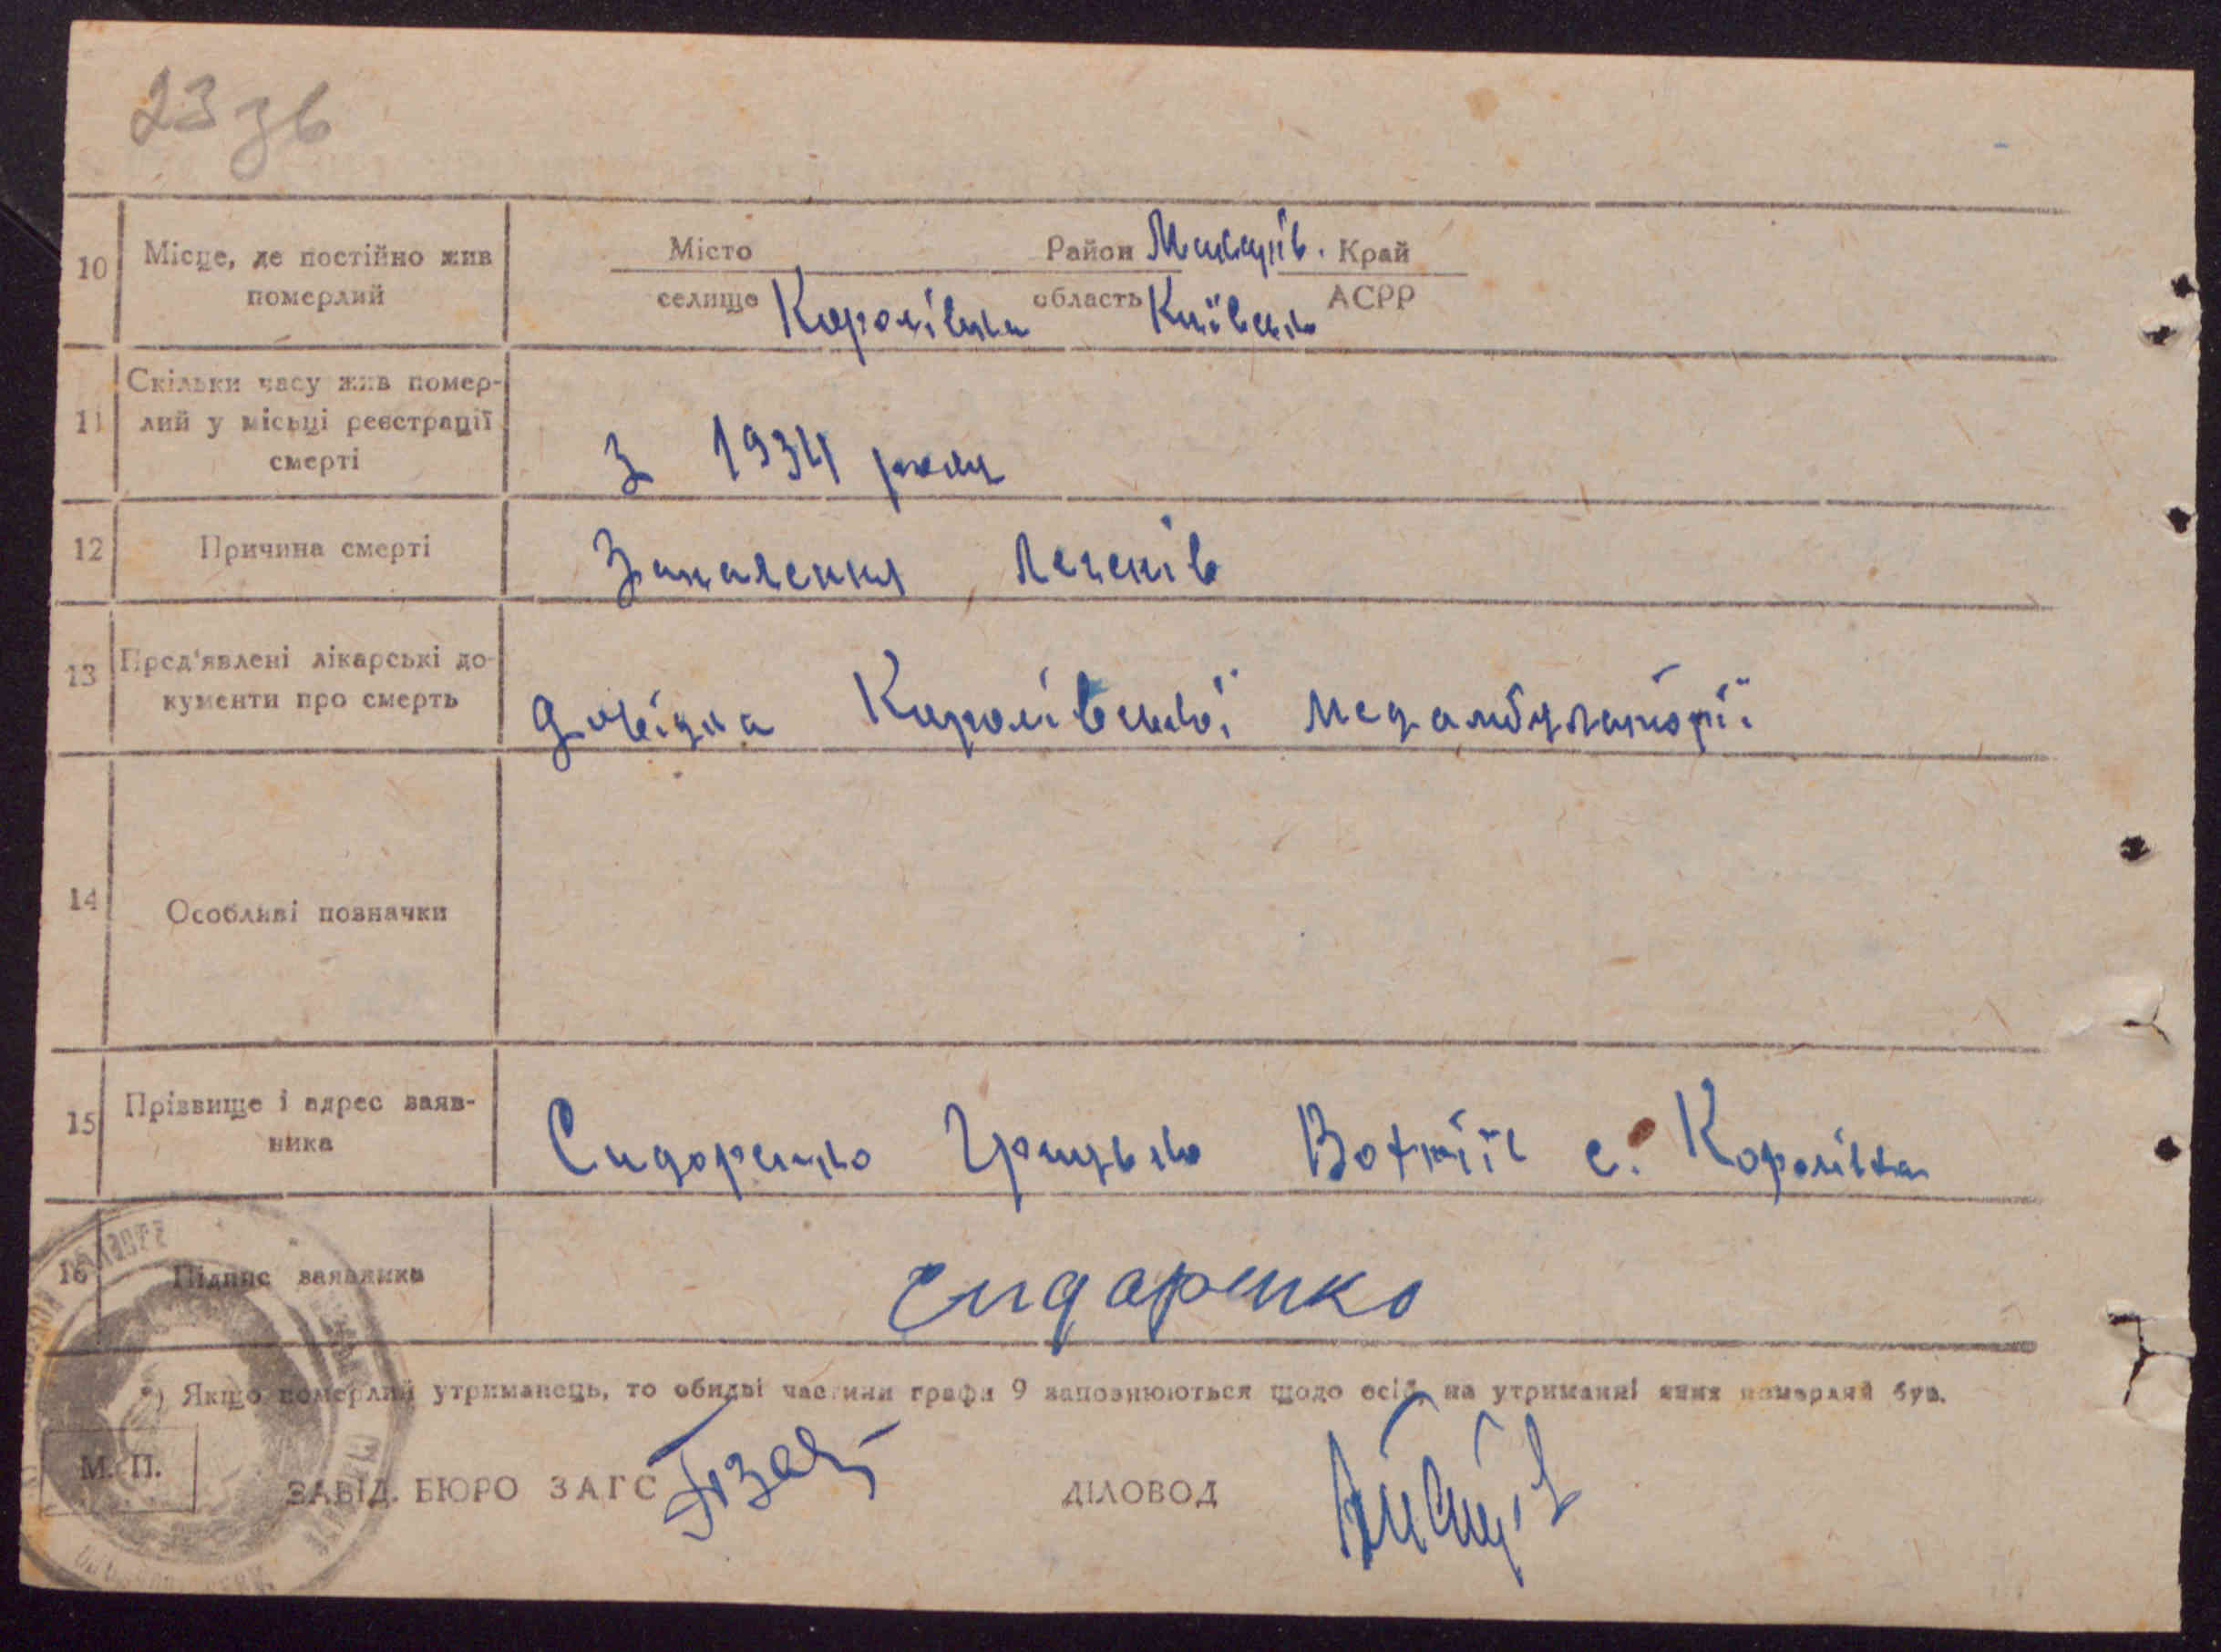 23 зв
10 Місце, де постійно жив померлий
Місто Район Макарів. Край
селище Королівка область Київсько АСРР
11 Скільки часу жив помер-
лий у місьці реєстрації
смерті
З 1934 року
12 Причина смерті Запалення легенів
13 Пред'явлені лікарські до-
кументи про смерть
довідка Королівської медамбулаторії
14 Особливі позначки
15 Прізвище і адрес заяв-
ника
Сидоренко Грицько с. Королівка
16 Підпис заявника Сидоренко
*) Якщо померлий утриманець, то обидві частини графи 9 заповнюються щодо осіб, на утриманні яких померлий був.
М. П.
ЗАВІД. БЮРО ЗАГС ДІЛОВОД